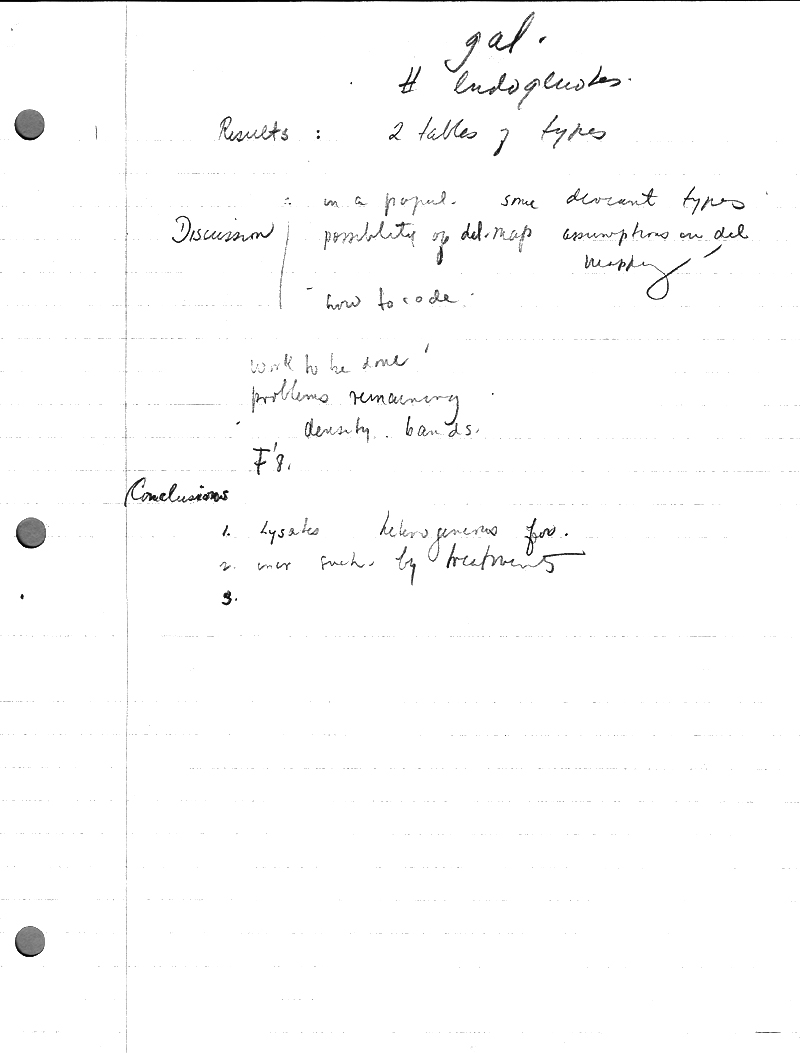 gal.
# Endogenotes.
Results : 2 tables of types
in a popul. some deviant types
Discussion possiblity of del. map assumptions in del
mapping
- how to code.
work to be done
problems remaining
density bands.
F's.
Conclusions
1. Lysates heterogeneous for.
2. incr such. by treatments
3.